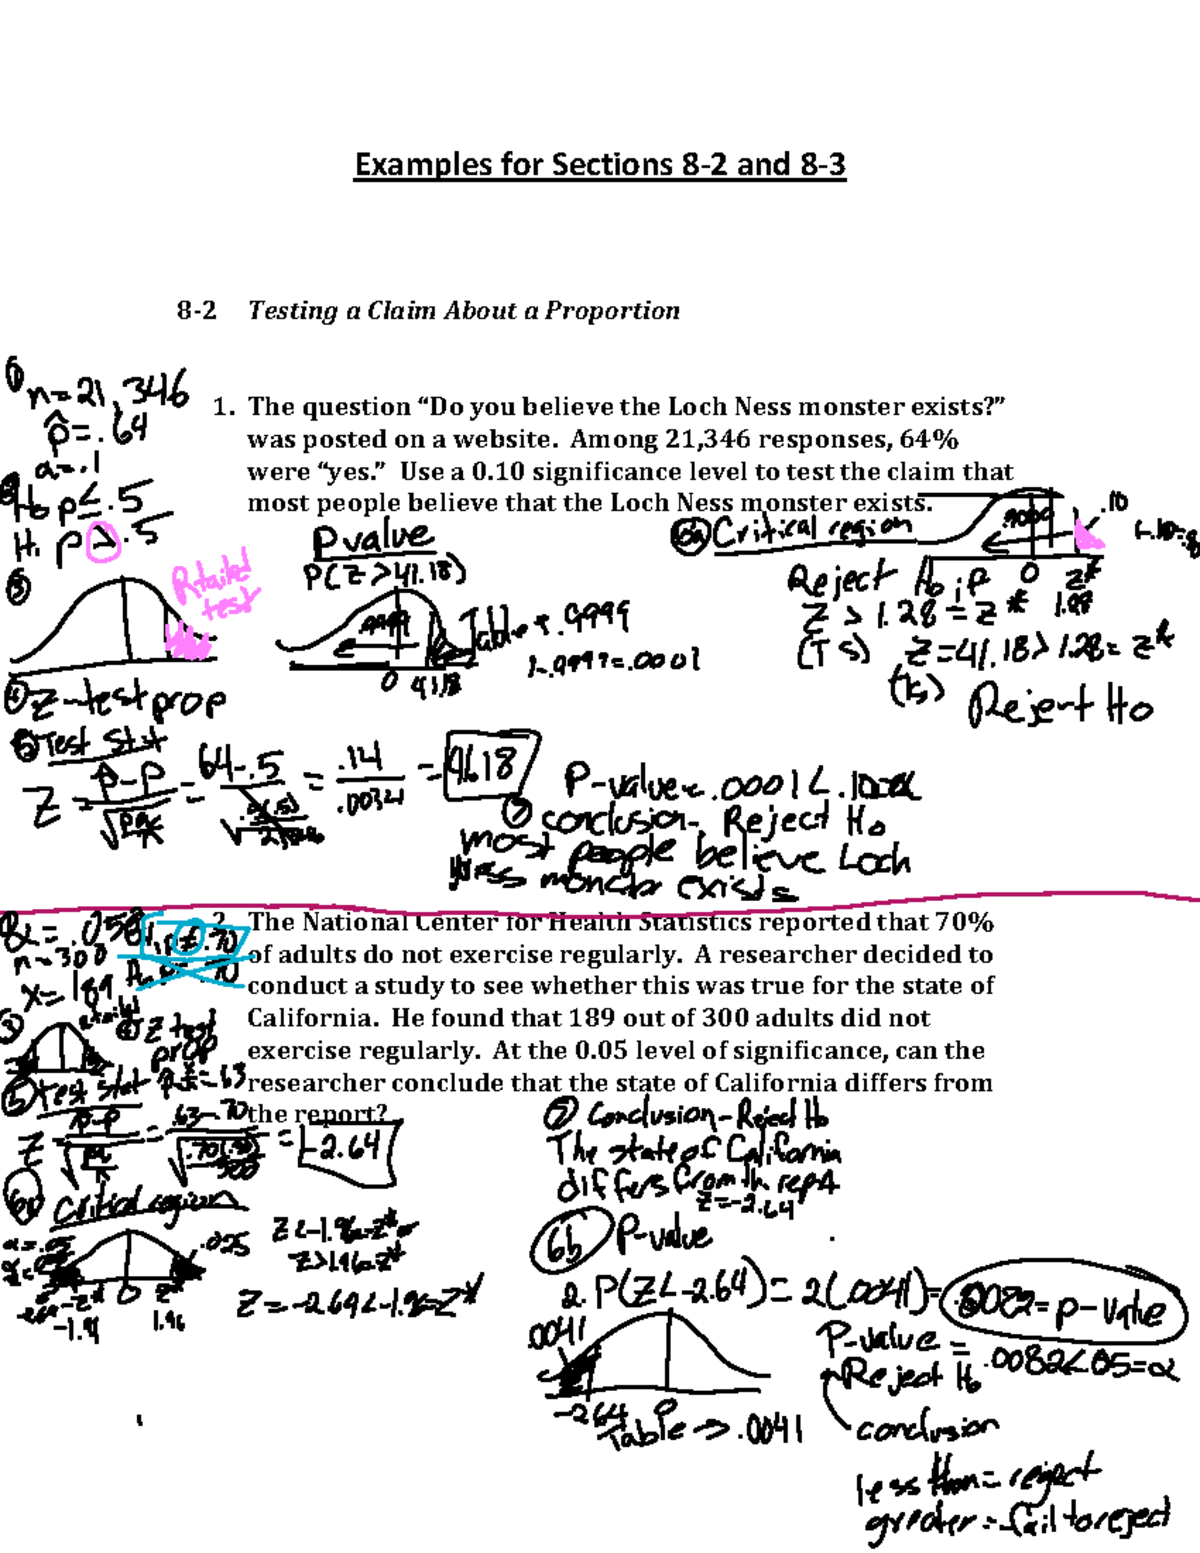 Examples for Sections 8-2 and 8-3
8-2 Testing a Claim About a Proportion
① n=21,346
p̂=.64
α=.1
② H₀ p≤.5
H₁ p>.5
1. The question “Do you believe the Loch Ness monster exists?”
was posted on a website. Among 21,346 responses, 64%
were “yes.” Use a 0.10 significance level to test the claim that
most people believe that the Loch Ness monster exists.
③
R tailed
test
P value
P(Z>41.18)
.9999
0 41.18
Table → .9999
1-.9999=.0001
6a Critical region
.9000
.10
0 z*
1.28
Reject H₀ if
Z > 1.28 = z*
(TS) Z=41.18>1.28=z*
(TS) Reject H₀
④ Z-test prop
⑤ Test Stat
Z = p̂-p / √pq/n = .64-.5 / = .14 / .0034 = 41.18
P-value=.0001<.10=α
⑦ conclusion- Reject H₀
most people believe Loch
Ness monster exists
α=.05
n=300
x=189
H₁ p≠.70
2. The National Center for Health Statistics reported that 70%
of adults do not exercise regularly. A researcher decided to
conduct a study to see whether this was true for the state of
California. He found that 189 out of 300 adults did not
exercise regularly. At the 0.05 level of significance, can the
researcher conclude that the state of California differs from
the report?
③
2 tailed
④ Z test
prop
⑤ Test stat p̂=.63
Z = p̂-p / √pq/n = .63-.70 / √.70(.30)/300 = -2.64
6a Critical region
α=.05
.025
-2.64 -z* 0 z*
-1.96 1.96
Z<-1.96=-z* or
Z>1.96=z*
Z=-2.64<-1.96=z*
⑦ Conclusion-Reject H₀
The state of California
differs from the report
Z=-2.64
6b P-value
2. P(Z<-2.64)=2(.0041)= .0082=p-value
.0041
-2.64 0
Table → .0041
P-value = .0082<.05=α
Reject H₀
conclusion
less than = reject
greater = fail to reject